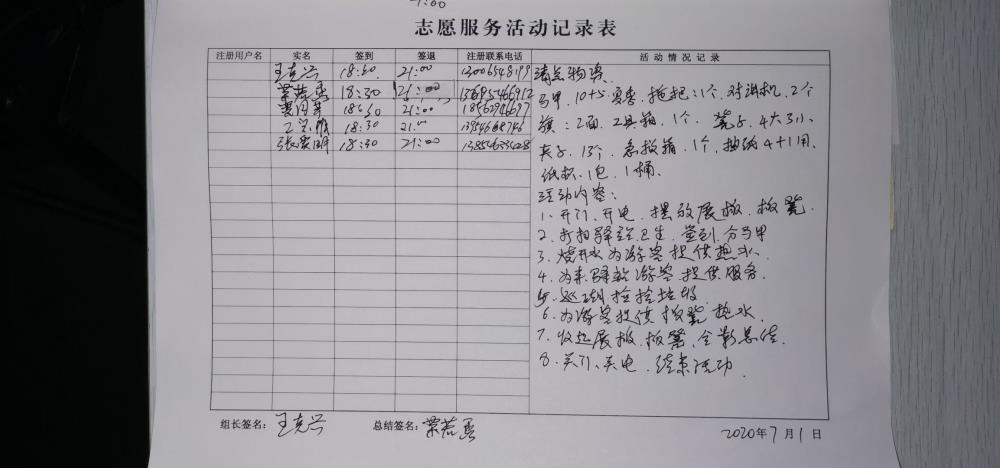 1:00
志愿服务活动记录表
注册用户名 实名 签到 签退 注册联系电话 活动情况记录
王克兴 18:30 21:00 13006548199
18:30 21:00 13695466912
18:30 21:00 18562946697
18:30 21:00 13954668746
张爱明 18:30 21:00 13854633428
清点物资
马甲、10+5 宾客、拖把:1个、对讲机、2个
旗:2面、工具箱、1个、凳子、4大3小、
夹子、13个、急救箱、1个、抽纸4+1用、
纸杯、1包、1桶、
活动内容:
1、开门、开电、摆放展板、板凳、
2、打扫驿站卫生、签到、分马甲
3、烧开水为游客提供热水、
4、为来驿站游客提供服务、
5、巡湖捡拾垃圾
6、为游客提供板凳热水、
7、收起展板、板凳、合影总结、
8、关门、关电、结束活动
组长签名: 王克兴 总结签名:
2020年7月1日